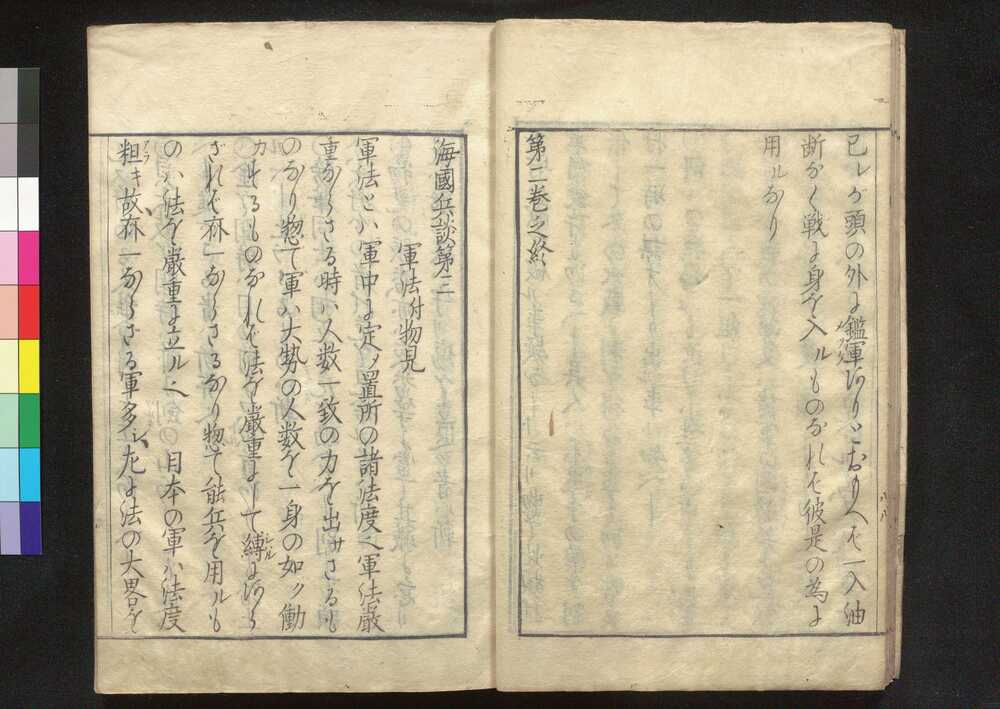 己レが頭の外に鑑軍ありとおもへば一入油
断なく戦に身を入ルものなれば彼是の為に
用ルなり
第二巻之終
海國兵談第三
軍法附物見
軍法とハ軍中に定メ置所の諸法度也軍法厳
重ならさる時ハ人数一致の力を出サさるも
のなり惣て軍ハ大勢の人数を一身の如ク働
カせるものなれば法を厳重にして縛にあら
ざれば齊一ならさるなり惣て能兵を用ルも
のハ法を厳重に立ル也 日本の軍ハ法度
粗キ故齊一ならさる軍多シ左に法の大畧を